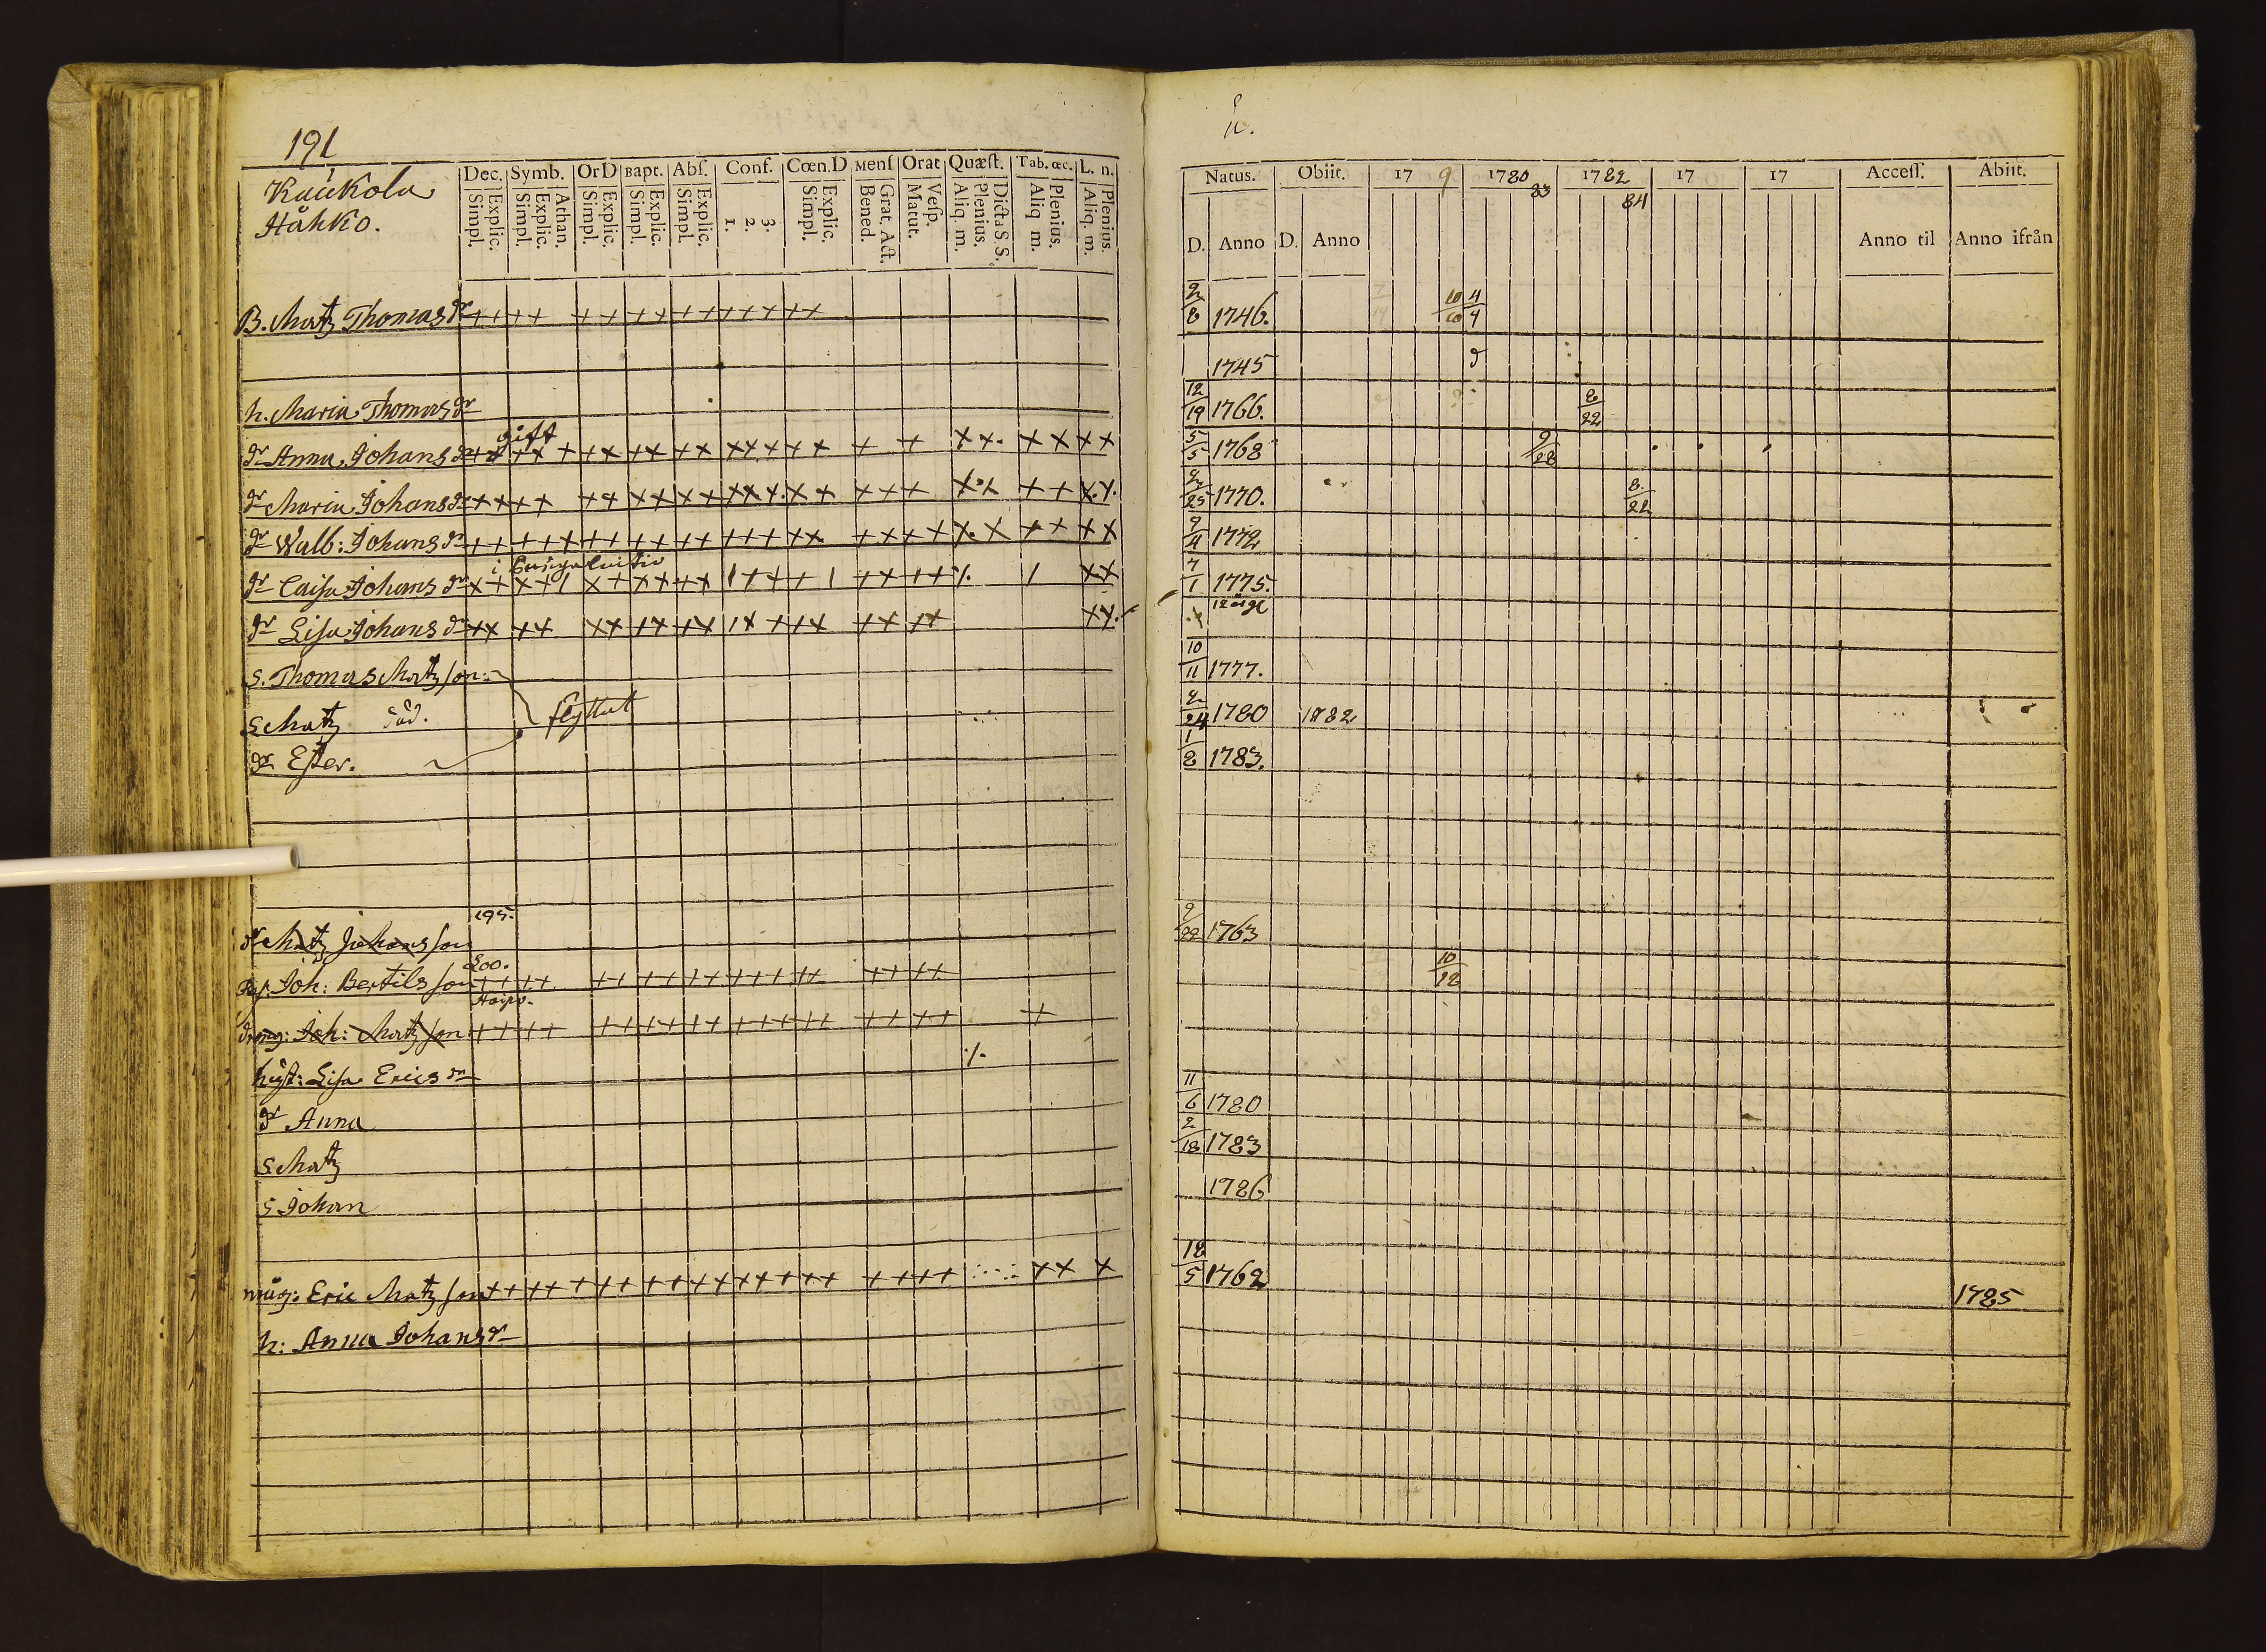 191
Kaukola
Håkko.
Dec. Symb. Or D Bapt. Abſ. Conf. Cœn. D Menſ Orat Quæſt. Tab. œc. L. n.
Explic. Simpl. Athan. Explic. Simpl. Explic. Simpl. Explic. Simpl. Explic. Simpl. 3. 2. 1. Explic. Simpl. Grat. Act. Bened. Veſp. Matut. Dicta S. S. Plenius. Aliq. m. Plenius. Aliq m. Plenius. Aliq. m.
B. Matz Thomas dr
h. Maria Thomas dr
gift
dr Anna Johans dr
dr Maria Johans dr
dr Walb: Johans dr
dr Caisa Johans dr
dr Lisa Johans dr
S. Thomas Matzson
S Matz död.
flyttat
dr Ester.
195.
Matz Johansson
200.
Joh: Bertilsson
dreng: Joh: Matzson
hust: Lisa Erics dr
dr Anna
S. Matz
S Johan
måg: Eric Matzson
h: Anna Johans dr
Natus. Obiit. 17 9 1780 83 1782 84 17 17 Acceſſ. Abiit.
D. Anno D. Anno Anno til Anno ifrån
8 1746. 10 4 4
1745
12 19 1766. 8 22
5 5 1768 9 28
25 1770. 8. 22
9 4 1772
7 1 1775.
12
10 11 1777.
24 1780 1782
1 8 1783.
9 22 1763
10 12
11 6 1780
2 18 1783
1786
12 5 1762
1785